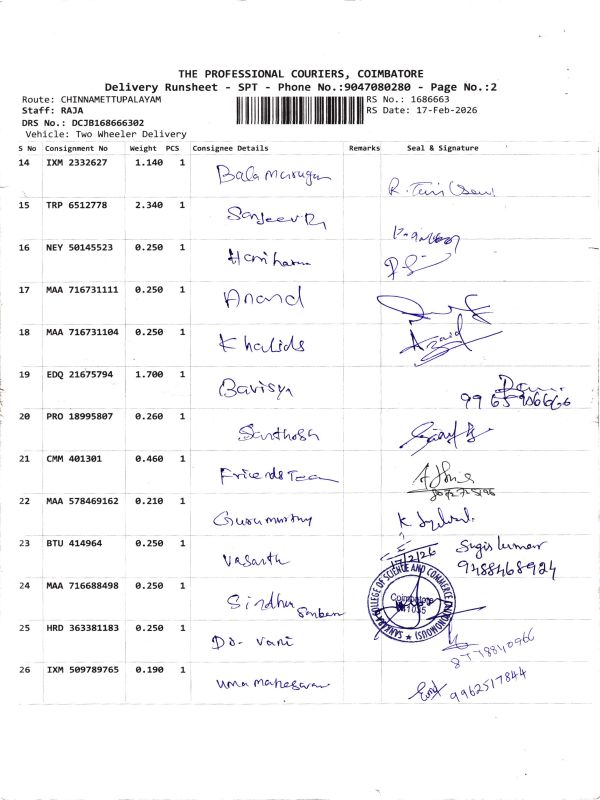 THE PROFESSIONAL COURIERS, COIMBATORE
Delivery Runsheet - SPT - Phone No.:9047080280 - Page No.:2
Route: CHINNAMETTUPALAYAM RS No.: 1686663
Staff: RAJA RS Date: 17-Feb-2026
DRS No.: DCJB168666302
Vehicle: Two Wheeler Delivery
S No Consignment No Weight PCS Consignee Details Remarks Seal & Signature
14 IXM 2332627 1.140 1 Balamurugan
15 TRP 6512778 2.340 1 Sanjeev
16 NEY 50145523 0.250 1 Hariharan
17 MAA 716731111 0.250 1 Anand
18 MAA 716731104 0.250 1 Khalids
19 EDQ 21675794 1.700 1 Bavisya
20 PRO 18995807 0.260 1 Santhosh
21 CMM 401301 0.460 1 Friends Team
22 MAA 578469162 0.210 1 Gurumurthy
23 BTU 414964 0.250 1 Vasanth 17/2/26 9488468924
24 MAA 716688498 0.250 1 Sindhu
SANKARA COLLEGE OF SCIENCE AND COMMERCE (AUTONOMOUS)
Coimbatore
25 HRD 363381183 0.250 1 Dr. Vani 8778840966
26 IXM 509789765 0.190 1 Uma maheswaran 9962517844